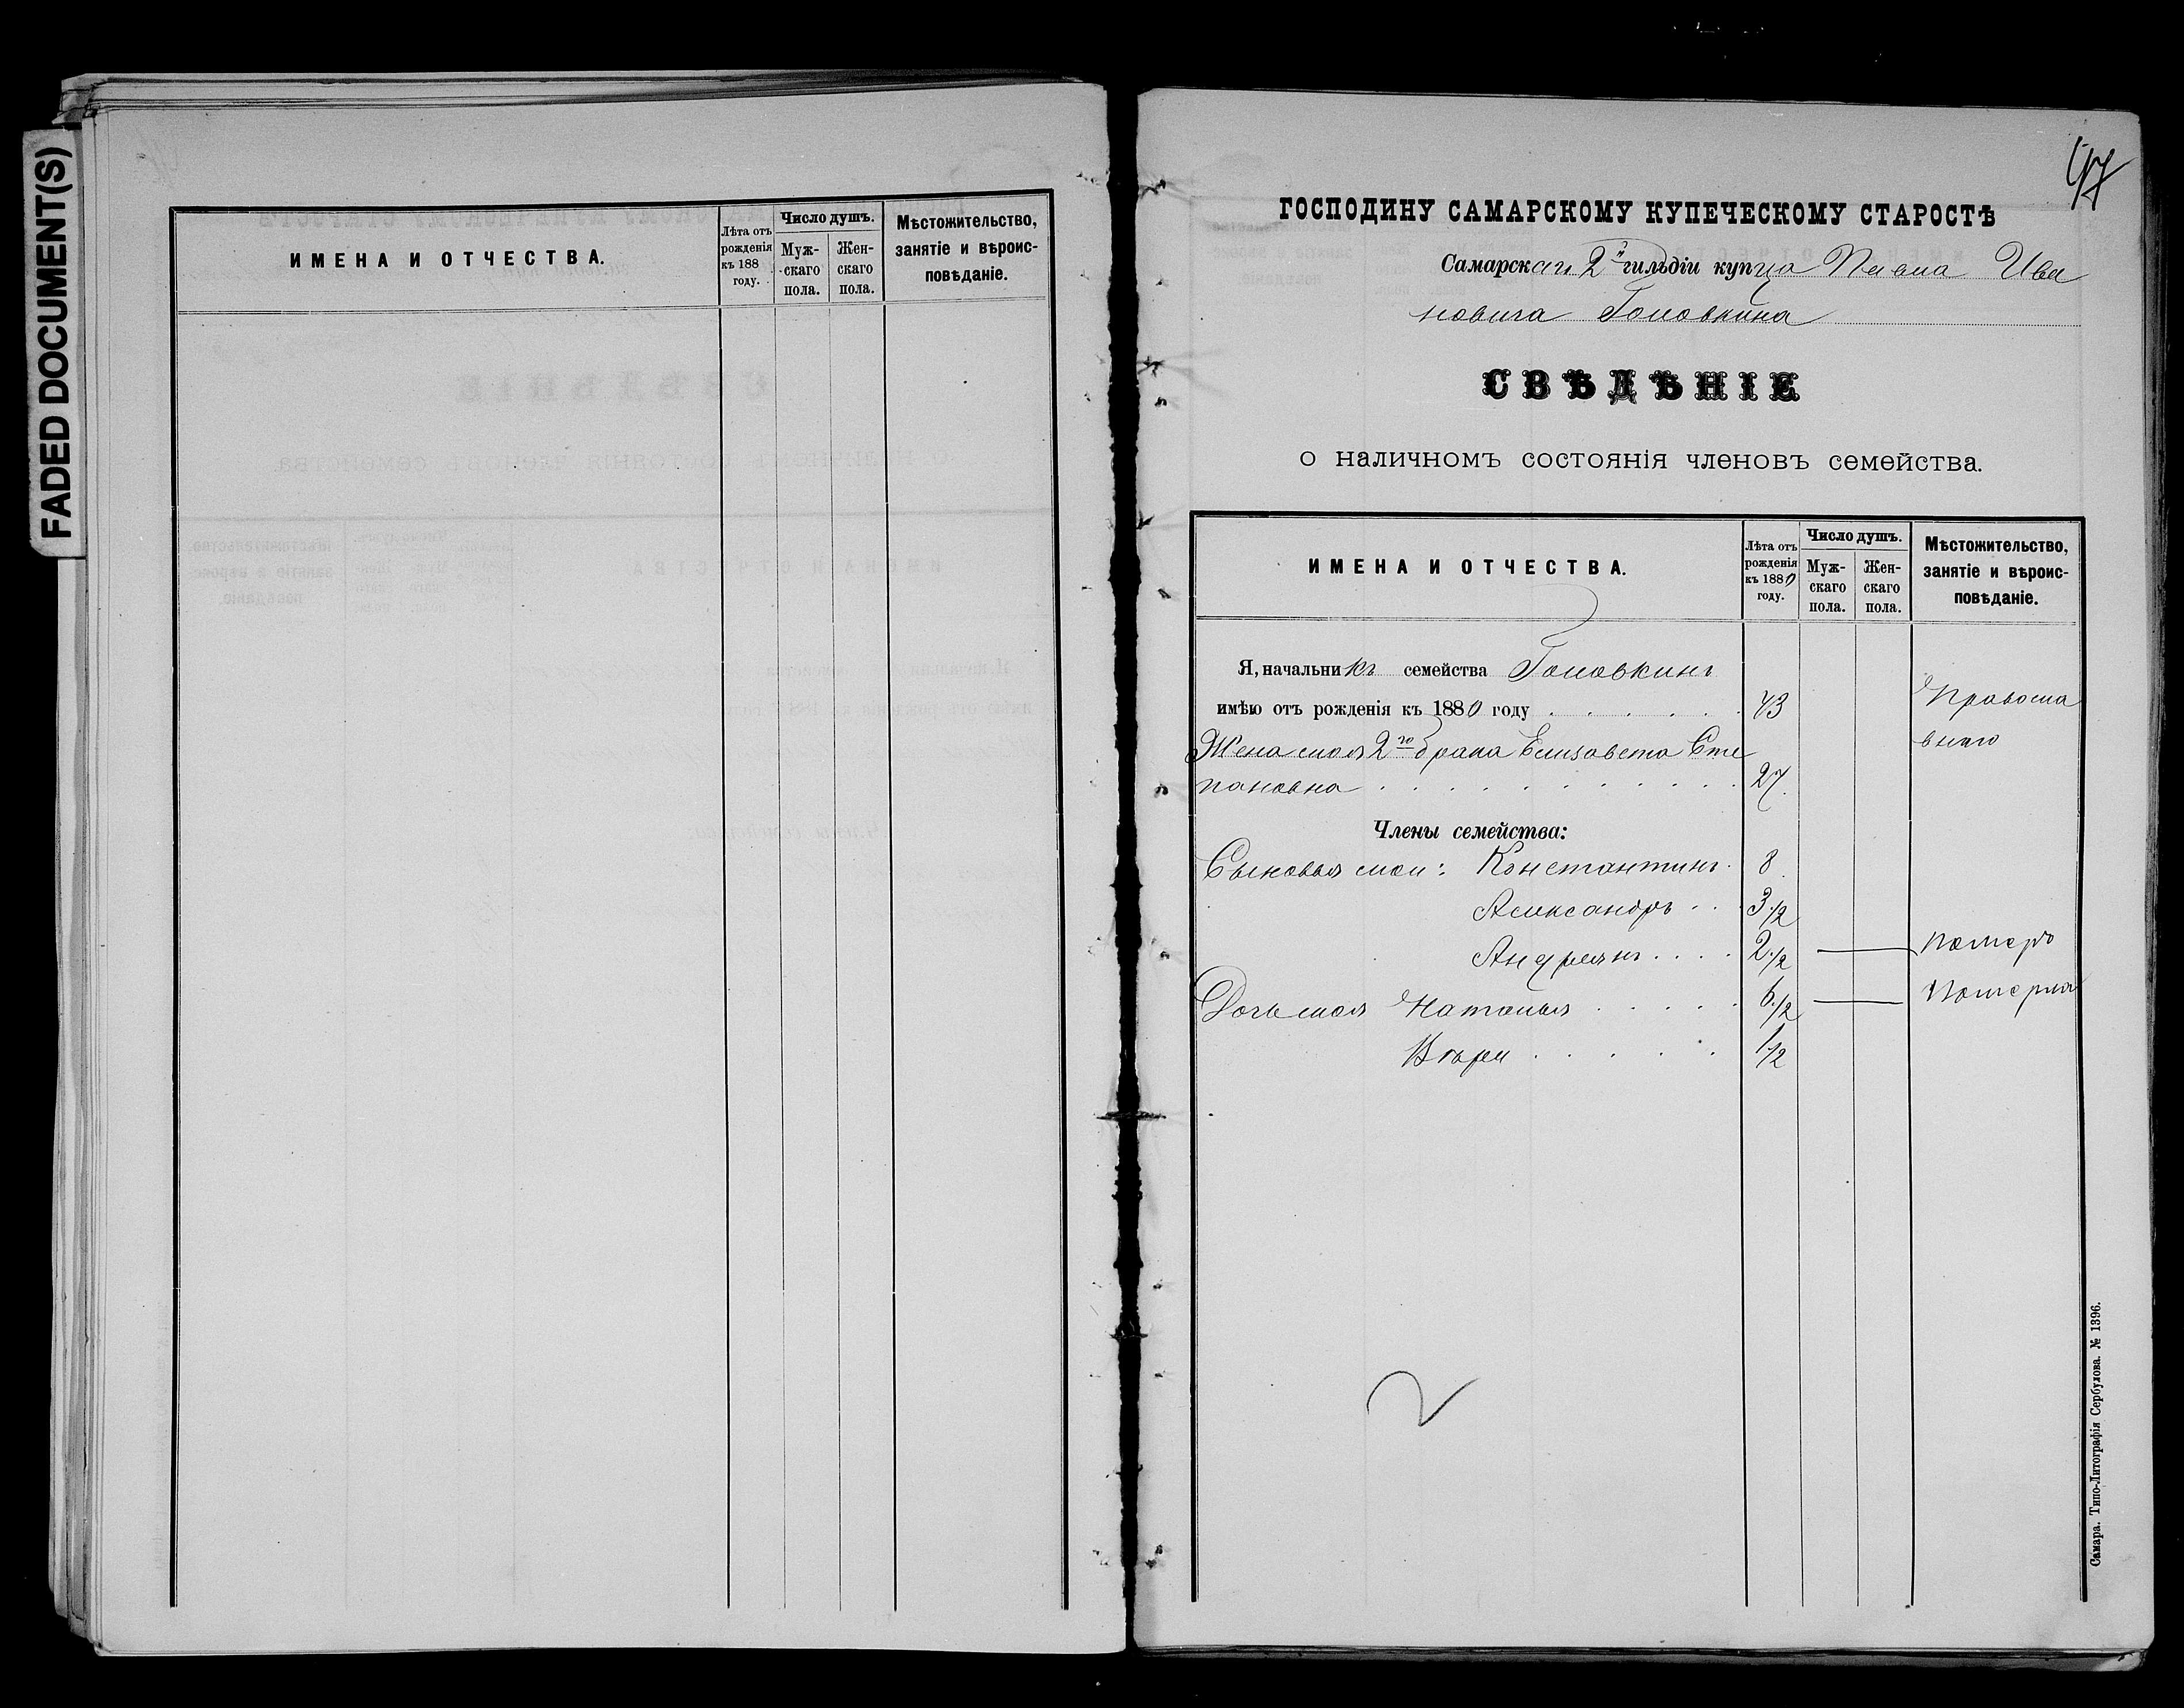 FADED DOCUMENT(S)
ИМЕНА И ОТЧЕСТВА.
Лѣта отъ рожденія къ 188 году.
Число душъ.
Мужскаго пола.
Женскаго пола.
Мѣстожительство, занятіе и вѣроисповѣданіе.
47
ГОСПОДИНУ САМАРСКОМУ КУПЕЧЕСКОМУ СТАРОСТѢ
Самарскаго 2й гильдіи купца Павла Ива
новича Головкина
СВѢДѢНІЕ
О НАЛИЧНОМЪ СОСТОЯНІЯ ЧЛЕНОВЪ СЕМЕЙСТВА.
ИМЕНА И ОТЧЕСТВА.
Лѣта отъ рожденія къ 1880 году.
Число душъ.
Мужскаго пола.
Женскаго пола.
Мѣстожительство, занятіе и вѣроисповѣданіе.
Я, начальникъ семейства Головкинъ
имѣю отъ рожденія къ 1880 году . . . . . . 43 Православнаго
Жена моя 2го брака Елизавета Сте
пановна . . . . . . . . . . . 27.
Члены семейства:
Сыновья мои: Константинъ. 8.
Александръ . . 3 1/2
Андреянъ . . . . 2 1/2 — померъ
Дочь моя Наталья . . . . . 6 1/2 — Померла
Вѣра . . . . . 1/2
Самара. Типо-Литографія Сербулова. № 1396.